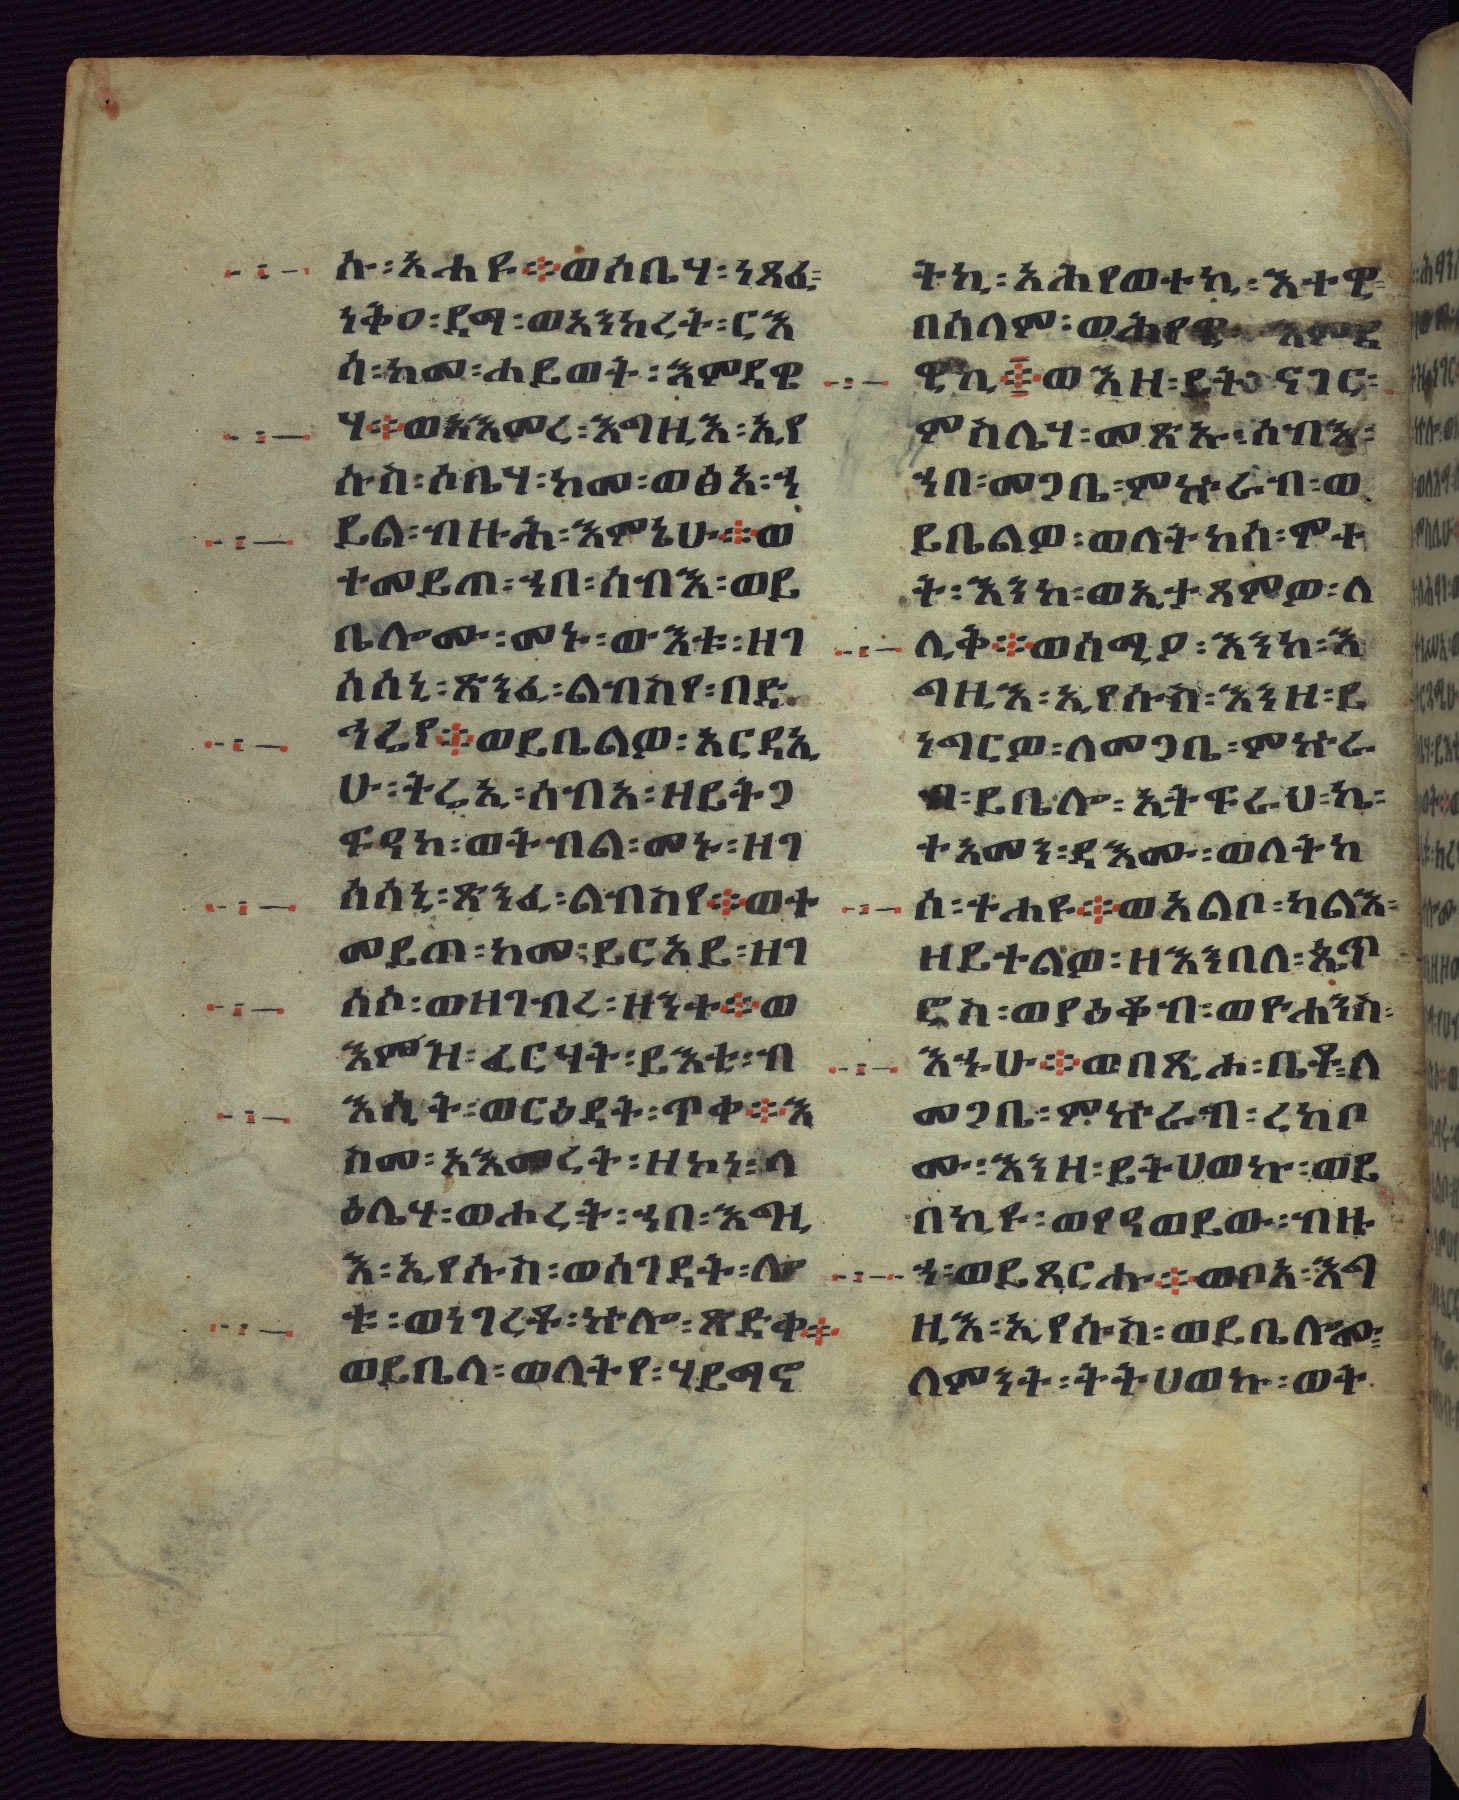 ሱ፡አሐዩ፨ወሶቤሃ፡ነጸፈ፡
ነቅዐ፡ደማ፡ወአንከረት፡ርእ
ሳ፡ከመ፡ሐይወት፡እምደዌ
ሃ፨ወአእመረ፡እግዚእ፡ኢየ
ሱስ፡ሶቤሃ፡ከመ፡ወፅአ፡ኀ
ይል፡ብዙሕ፡እምኔሁ፨ወ
ተመይጠ፡ኀበ፡ሰብእ፡ወይ
ቤሎሙ፡መኑ፡ውእቱ፡ዘገ
ሰሰኒ፡ጽንፈ፡ልብስየ፡በድ
ኅሬየ፨ወይቤልዎ፡አርዳኢ
ሁ፡ትሬኢ፡ሰብአ፡ዘይትጋ
ፍዓከ፡ወትብል፡መኑ፡ዘገ
ሰሰኒ፡ጽንፈ፡ልብስየ፨ወተ
መይጠ፡ከመ፡ይርአይ፡ዘገ
ሰሶ፡ወዘገብረ፡ዘንተ፨ወ
እምዝ፡ፈርሃት፡ይእቲ፡ብ
እሲት፡ወርዕደት፡ጥቀ፨እ
ስመ፡አእመረት፡ዘኮነ፡ላ
ዕሌሃ፡ወሖረት፡ኀበ፡እግዚ
እ፡ኢየሱስ፡ወሰገደት፡ሎ
ቱ፡ወነገረቶ፡ኵሎ፡ጽድቀ፨
ወይቤላ፡ወለትየ፡ሃይማኖ
ትኪ፡አሕየወተኪ፡እተዊ፡
በሰላም፡ወሕየዊ፡እምደ
ዌኪ፨ወእንዘ፡ይትናገር፡
ምስሌሃ፡መጽኡ፡ሰብእ፡
ኀበ፡መጋቤ፡ምኵራብ፡ወ
ይቤልዎ፡ወለትከሰ፡ሞተ
ት፡እንከ፡ወኢታጻምዎ፡ለ
ሊቅ፨ወሰሚዖ፡እንከ፡እ
ግዚእ፡ኢየሱስ፡እንዘ፡ይ
ነግርዎ፡ለመጋቤ፡ምኵራ
ብ፡ይቤሎ፡ኢትፍራህ፡ኬ፡
ተአመን፡ዳእሙ፡ወለትከ
ሰ፡ተሐዩ፨ወአልቦ፡ካልእ፡
ዘይተልዎ፡ዘእንበለ፡ጴጥ
ሮስ፡ወያዕቆብ፡ወዮሐንስ፡
እኁሁ፨ወበጺሐ፡ቤቶ፡ለ
መጋቤ፡ምኵራብ፡ረከቦ
ሙ፡እንዘ፡ይትሀወኩ፡ወይ
በክዩ፡ወየዓወይው፡ብዙ
ኀ፡ወይጸርሑ፨ወቦአ፡እግ
ዚእ፡ኢየሱስ፡ወይቤሎሙ፡
ለምንት፡ትትሀወኩ፡ወት